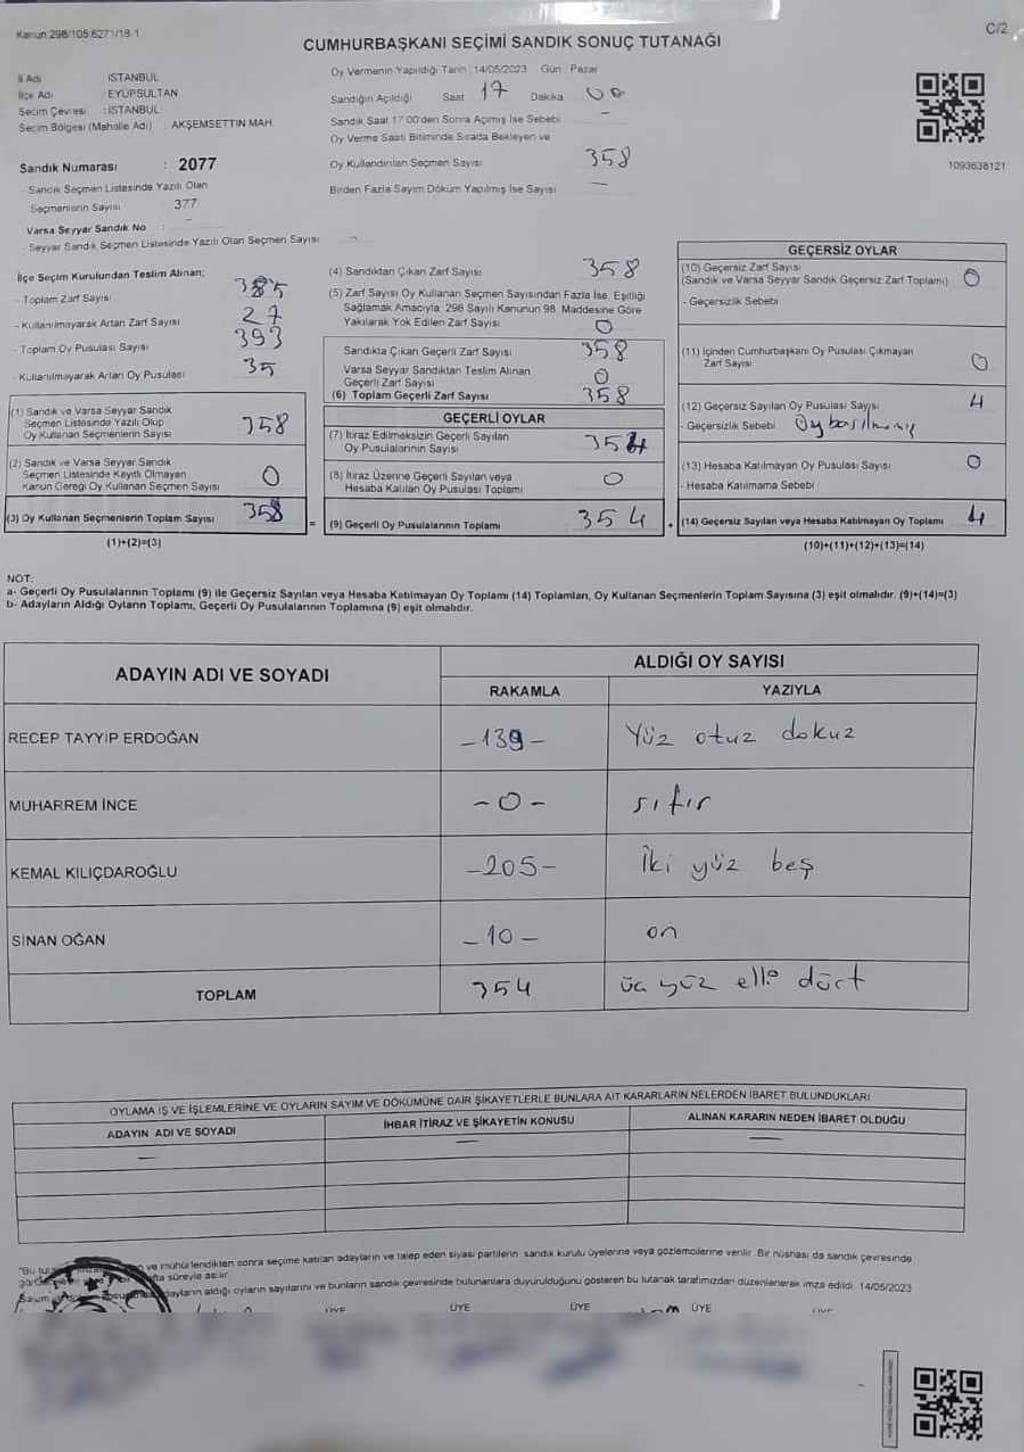 Kanun 298/105 6271/18-1
C/2
CUMHURBAŞKANI SEÇİMİ SANDIK SONUÇ TUTANAĞI
İl Adı İSTANBUL
İlçe Adı EYÜPSULTAN
Seçim Çevresi : İSTANBUL
Seçim Bölgesi (Mahalle Adı) AKŞEMSETTİN MAH.
Oy Vermenin Yapıldığı Tarih 14/05/2023 Gün Pazar
Sandığın Açıldığı Saat 17 Dakika 00
Sandık Saat 17:00'den Sonra Açılmış İse Sebebi –
Oy Verme Saati Bitiminde Sırada Bekleyen ve
Oy Kullandırılan Seçmen Sayısı 358
Birden Fazla Sayım Döküm Yapılmış İse Sayısı —
1093638121
Sandık Numarası : 2077
- Sandık Seçmen Listesinde Yazılı Olan
Seçmenlerin Sayısı 377
Varsa Seyyar Sandık No : –
- Seyyar Sandık Seçmen Listesinde Yazılı Olan Seçmen Sayısı –
İlçe Seçim Kurulundan Teslim Alınan;
- Toplam Zarf Sayısı 385
- Kullanılmayarak Artan Zarf Sayısı 27
- Toplam Oy Pusulası Sayısı 393
- Kullanılmayarak Artan Oy Pusulası 35
(1) Sandık ve Varsa Seyyar Sandık
Seçmen Listesinde Yazılı Olup
Oy Kullanan Seçmenlerin Sayısı 358
(2) Sandık ve Varsa Seyyar Sandık
Seçmen Listesinde Kayıtlı Olmayan
Kanun Gereği Oy Kullanan Seçmen Sayısı 0
(3) Oy Kullanan Seçmenlerin Toplam Sayısı 358
(1)+(2)=(3)
(4) Sandıktan Çıkan Zarf Sayısı 358
(5) Zarf Sayısı Oy Kullanan Seçmen Sayısından Fazla İse, Eşitliği
Sağlamak Amacıyla, 298 Sayılı Kanunun 98. Maddesine Göre
Yakılarak Yok Edilen Zarf Sayısı 0
Sandıkta Çıkan Geçerli Zarf Sayısı 358
Varsa Seyyar Sandıktan Teslim Alınan
Geçerli Zarf Sayısı 0
(6) Toplam Geçerli Zarf Sayısı 358
GEÇERLİ OYLAR
(7) İtiraz Edilmeksizin Geçerli Sayılan
Oy Pusulalarının Sayısı 354
(8) İtiraz Üzerine Geçerli Sayılan veya
Hesaba Katılan Oy Pusulası Toplamı 0
= (9) Geçerli Oy Pusulalarının Toplamı 354
GEÇERSİZ OYLAR
(10) Geçersiz Zarf Sayısı
(Sandık ve Varsa Seyyar Sandık Geçersiz Zarf Toplamı) 0
- Geçersizlik Sebebi
(11) İçinden Cumhurbaşkanı Oy Pusulası Çıkmayan
Zarf Sayısı 0
(12) Geçersiz Sayılan Oy Pusulası Sayısı 4
- Geçersizlik Sebebi Oy basılmamış
(13) Hesaba Katılmayan Oy Pusulası Sayısı 0
- Hesaba Katılmama Sebebi
+ (14) Geçersiz Sayılan veya Hesaba Katılmayan Oy Toplamı 4
(10)+(11)+(12)+(13)=(14)
NOT:
a- Geçerli Oy Pusulalarının Toplamı (9) ile Geçersiz Sayılan veya Hesaba Katılmayan Oy Toplamı (14) Toplamları, Oy Kullanan Seçmenlerin Toplam Sayısına (3) eşit olmalıdır. (9)+(14)=(3)
b- Adayların Aldığı Oyların Toplamı, Geçerli Oy Pusulalarının Toplamına (9) eşit olmalıdır.
ADAYIN ADI VE SOYADI ALDIĞI OY SAYISI
RAKAMLA YAZIYLA
RECEP TAYYİP ERDOĞAN -139- Yüz otuz dokuz
MUHARREM İNCE -0- sıfır
KEMAL KILIÇDAROĞLU -205- İki yüz beş
SİNAN OĞAN -10- on
TOPLAM 354 üç yüz elli dört
OYLAMA İŞ VE İŞLEMLERİNE VE OYLARIN SAYIM VE DÖKÜMÜNE DAİR ŞİKAYETLERLE BUNLARA AİT KARARLARIN NELERDEN İBARET BULUNDUKLARI
ADAYIN ADI VE SOYADI İHBAR İTİRAZ VE ŞİKAYETİN KONUSU ALINAN KARARIN NEDEN İBARET OLDUĞU
— — —
"Bu ve mühürlendikten sonra seçime katılan adayların ve talep eden siyasi partilerin sandık kurulu üyelerine veya gözlemcilerine verilir. Bir nüshası da sandık çevresinde
süreyle asılır.
Sayım adayların aldığı oyların sayılarını ve bunların sandık çevresinde bulunanlara duyurulduğunu gösteren bu tutanak tarafımızdan düzenlenerek imza edildi. 14/05/2023
ÜYE ÜYE ÜYE ÜYE ÜYE